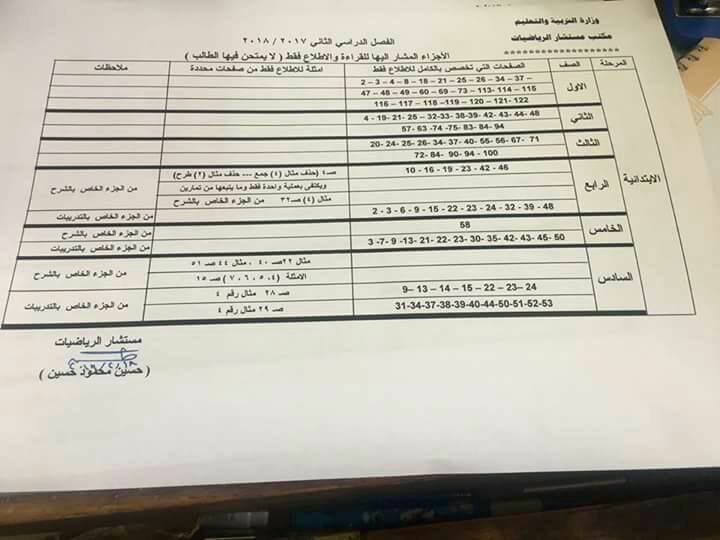 وزارة التربية والتعليم
مكتب مستشار الرياضيات
********************
الفصل الدراسي الثاني ٢٠١٧ / ٢٠١٨
الأجزاء المشار اليها للقراءة والاطلاع فقط ( لا يمتحن فيها الطالب )
المرحلة الصف الصفحات التي تخصص بالكامل للاطلاع فقط امثلة للاطلاع فقط من صفحات محددة ملاحظات
الابتدائية
الاول
2 – 3 – 4 – 8 – 18 – 21 – 25 – 26 – 34 – 37 –
47 – 48 – 49 – 60 – 69 – 73 – 113- 114 – 115
116 – 117 – 118 –119 –120 – 121- 122
الثاني
4 - 19- 21- 25 – 32-33- 38-39- 42- 43- 44- 48
57- 63 -74 -75- 83- 84- 94
الثالث
20- 24- 25- 26- 34- 37- 40- 55- 56- 67- 71
72- 84- 90- 94 - 100
الرابع
10 - 16 - 19 - 23 - 42 - 46
صـ٤ (حذف مثال (٤) جمع --- حذف مثال (٢) طرح)
ويكتفى بعملية واحدة فقط وما يتبعها من تمارين
مثال (٤) صـ٣٢ من الجزء الخاص بالشرح
من الجزء الخاص بالشرح
2 - 3 - 6 - 9 - 15 - 22 - 23 - 24 - 32 - 39 - 48
من الجزء الخاص بالتدريبات
الخامس
58
من الجزء الخاص بالشرح
3 -7- 9 -13- 21- 22- 23- 30- 35- 42- 43- 45- 50
من الجزء الخاص بالتدريبات
السادس
مثال ٢٢صـ ٤٠ ، مثال ٤٤ صـ ٥١
الامثلة (٤ ، ٥ ، ٦ ، ٧) صـ ١٥
من الجزء الخاص بالشرح
9– 13 – 14 – 15 – 22 – 23– 24
صـ ٢٨ مثال رقم ٤
31-34-37-38-39-40-44-50-51-52-53
صـ ٢٩ مثال رقم ٤
من الجزء الخاص بالتدريبات
مستشار الرياضيات
( حسين محمود حسين )